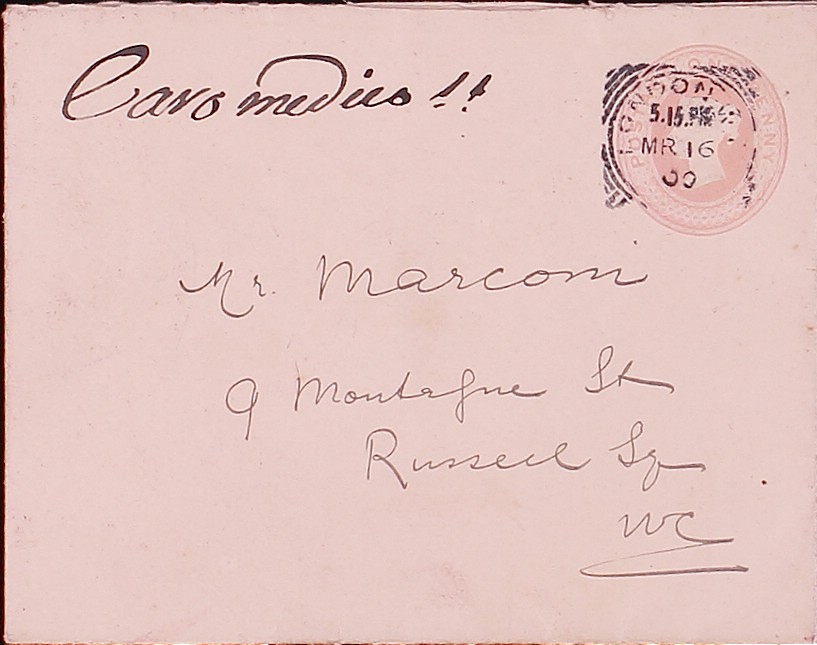 Caro medico !!
LONDON
5.15.PM
MR 16
00
POSTAGE ONE PENNY
Mr. Marconi
9 Montague St
Russell Sq
WC